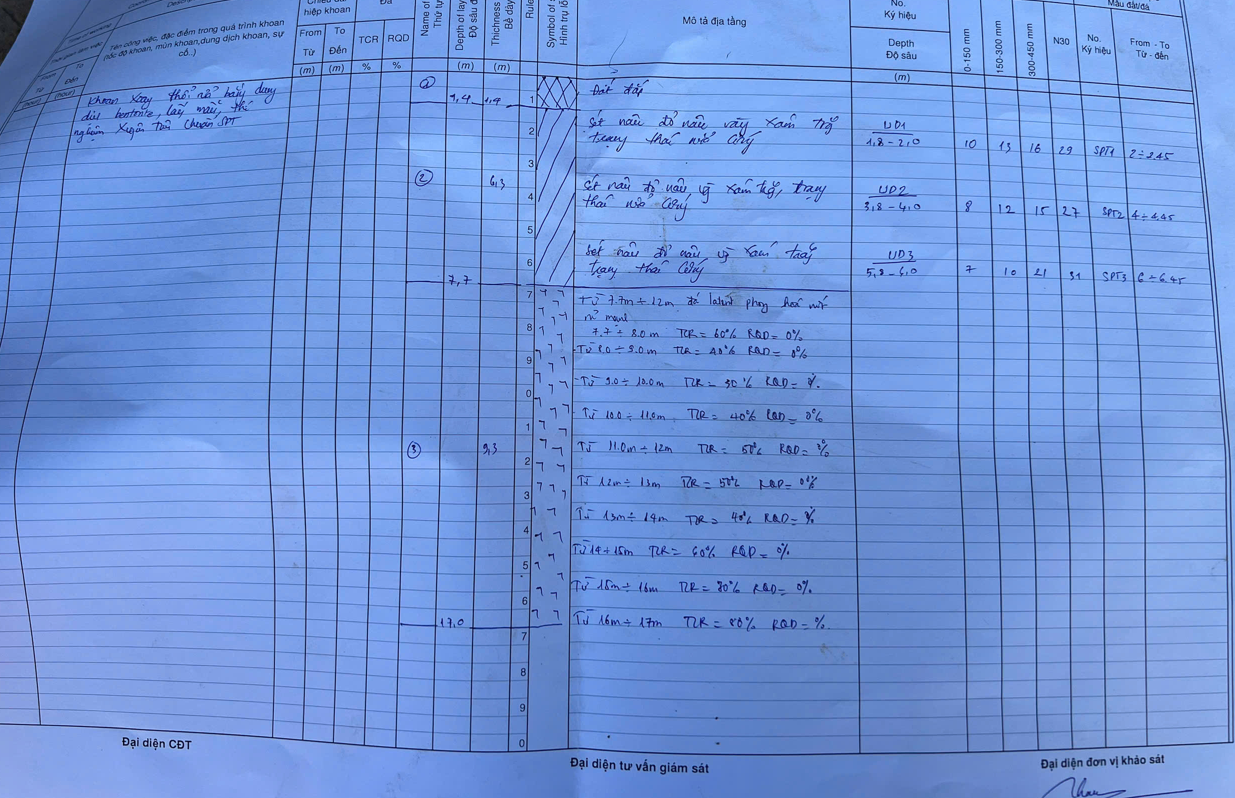 hiệp khoan
Đá
No.
Ký hiệu
Mẫu đất/đá
Tên công việc, đặc điểm trong quá trình khoan
(tốc độ khoan, mùn khoan, dung dịch khoan, sự cố..)
From
Từ
To
Đến
TCR
RQD
Name of
Thứ tự
Depth of lay
Độ sâu đ
Thichness
Bề dày
Rule
Symbol of
Hình trụ lỗ
Mô tả địa tầng
Depth
Độ sâu
0-150 mm
150-300 mm
300-450 mm
N30
No.
Ký hiệu
From - To
Từ - đến
(hour) (hour) (m) (m) % % (m) (m) (m)
Khoan xoay thổi rửa bằng dung
dịch bentonite, lấy mẫu, thí
nghiệm xuyên tiêu chuẩn SPT
1,4 1,4 1 Đất đắp
2 Sét nâu đỏ nâu vàng xám trắng
trạng thái nửa cứng
UD1
1,8 - 2,0 10 13 16 29 SPT1 2 ÷ 2.45
3
② 6,3
4 Sét nâu đỏ nâu, xám trắng, trạng
thái nửa cứng
UD2
3,8 - 4,0 8 12 15 27 SPT2 4 ÷ 4.45
5
6 Sét nâu đỏ nâu xám trắng
trạng thái cứng
UD3
5,8 - 6,0 7 10 21 31 SPT3 6 ÷ 6.45
7,7
7 Từ 7.7m ÷ 12m đá phong hoá nứt
nẻ mạnh
8 7.7 ÷ 8.0m TCR = 60% RQD = 0%
- Từ 8.0 ÷ 9.0m TCR = 40% RQD = 0%
9 - Từ 9.0 ÷ 10.0m TCR = 30% RQD = 0%
0 - Từ 10.0 ÷ 11.0m TCR = 40% RQD = 0%
1
③ 9,3 Từ 11.0m ÷ 12m TCR = 50% RQD = 0%
2 Từ 12m ÷ 13m TCR = 50% RQD = 0%
3 Từ 13m ÷ 14m TCR = 40% RQD = 0%
4 Từ 14 ÷ 15m TCR = 60% RQD = 0%
5 Từ 15m ÷ 16m TCR = 80% RQD = 0%
6
17,0 Từ 16m ÷ 17m TCR = 80% RQD = 0%
7
8
9
0
Đại diện CĐT
Đại diện tư vấn giám sát
Đại diện đơn vị khảo sát